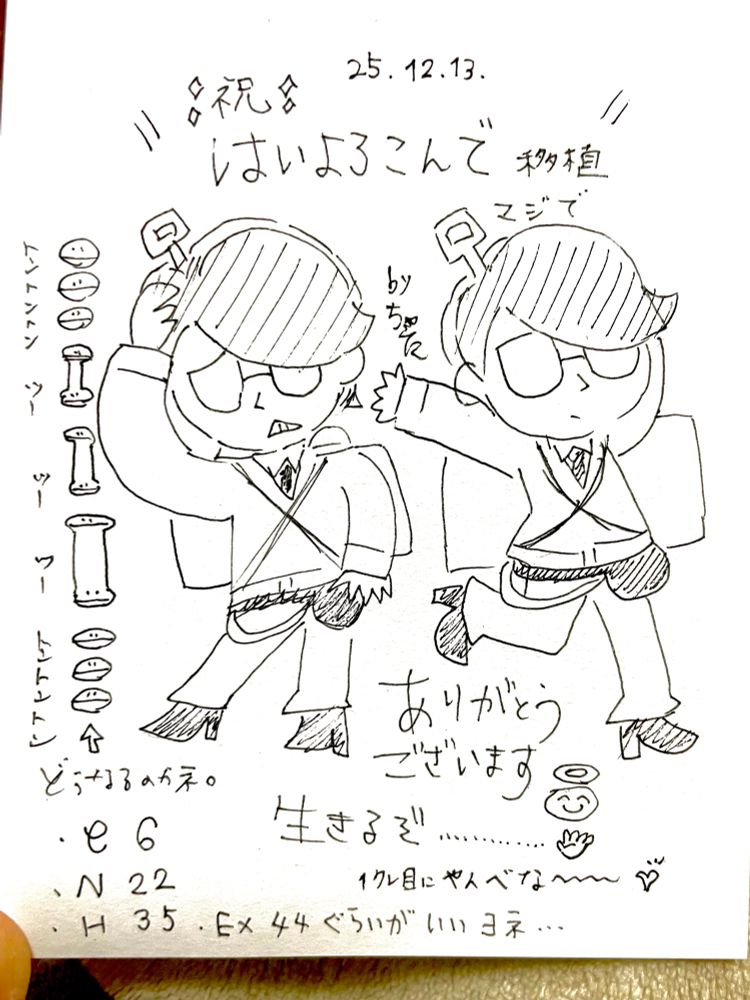 25.12.13.
祝
はいよろこんで 移植
マジで
by
トントントン
ツー
ツー
ツー
トントントン
どうなるのかネ。
ありがとう
ございます
生きるぞ…………
・e 6
・N 22
1クレ目にやんべな〜〜〜
・H 35 ・EX 44ぐらいがいいヨネ…